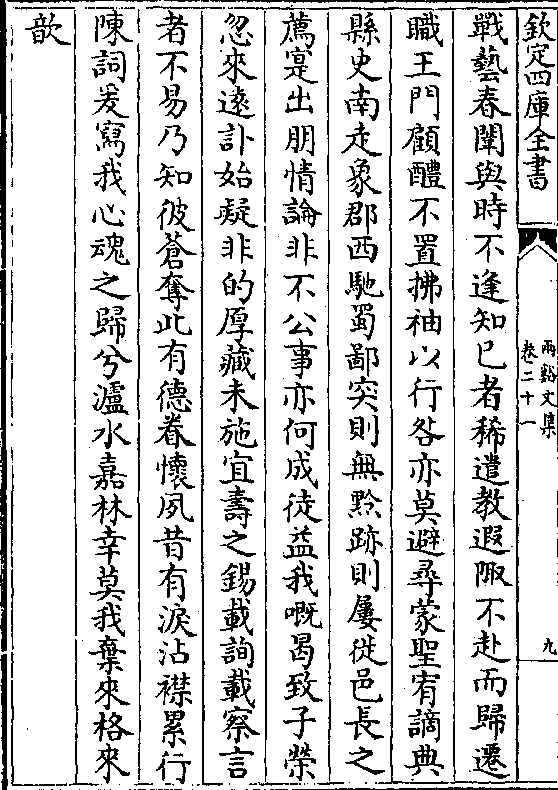 欽定四庫全書
兩谿文集
卷二十一
九
戰藝春闈與時不逢知已者稀遣教遐陬不赴而歸遷
職王門顧醴不置拂袖以行咎亦莫避尋蒙聖宥謫典
縣史南走象郡西馳蜀鄙突則無黔跡則屢徙邑長之
薦寔出朋情論非不公事亦何成徒益我嘅曷致子榮
忽來遠訃始疑非的厚藏未施宜壽之錫載詢載察言
者不易乃知彼蒼奪此有德眷懷夙昔有淚沾襟累行
陳詞爰寫我心魂之歸兮瀘水嘉林幸莫我棄來格來
歆